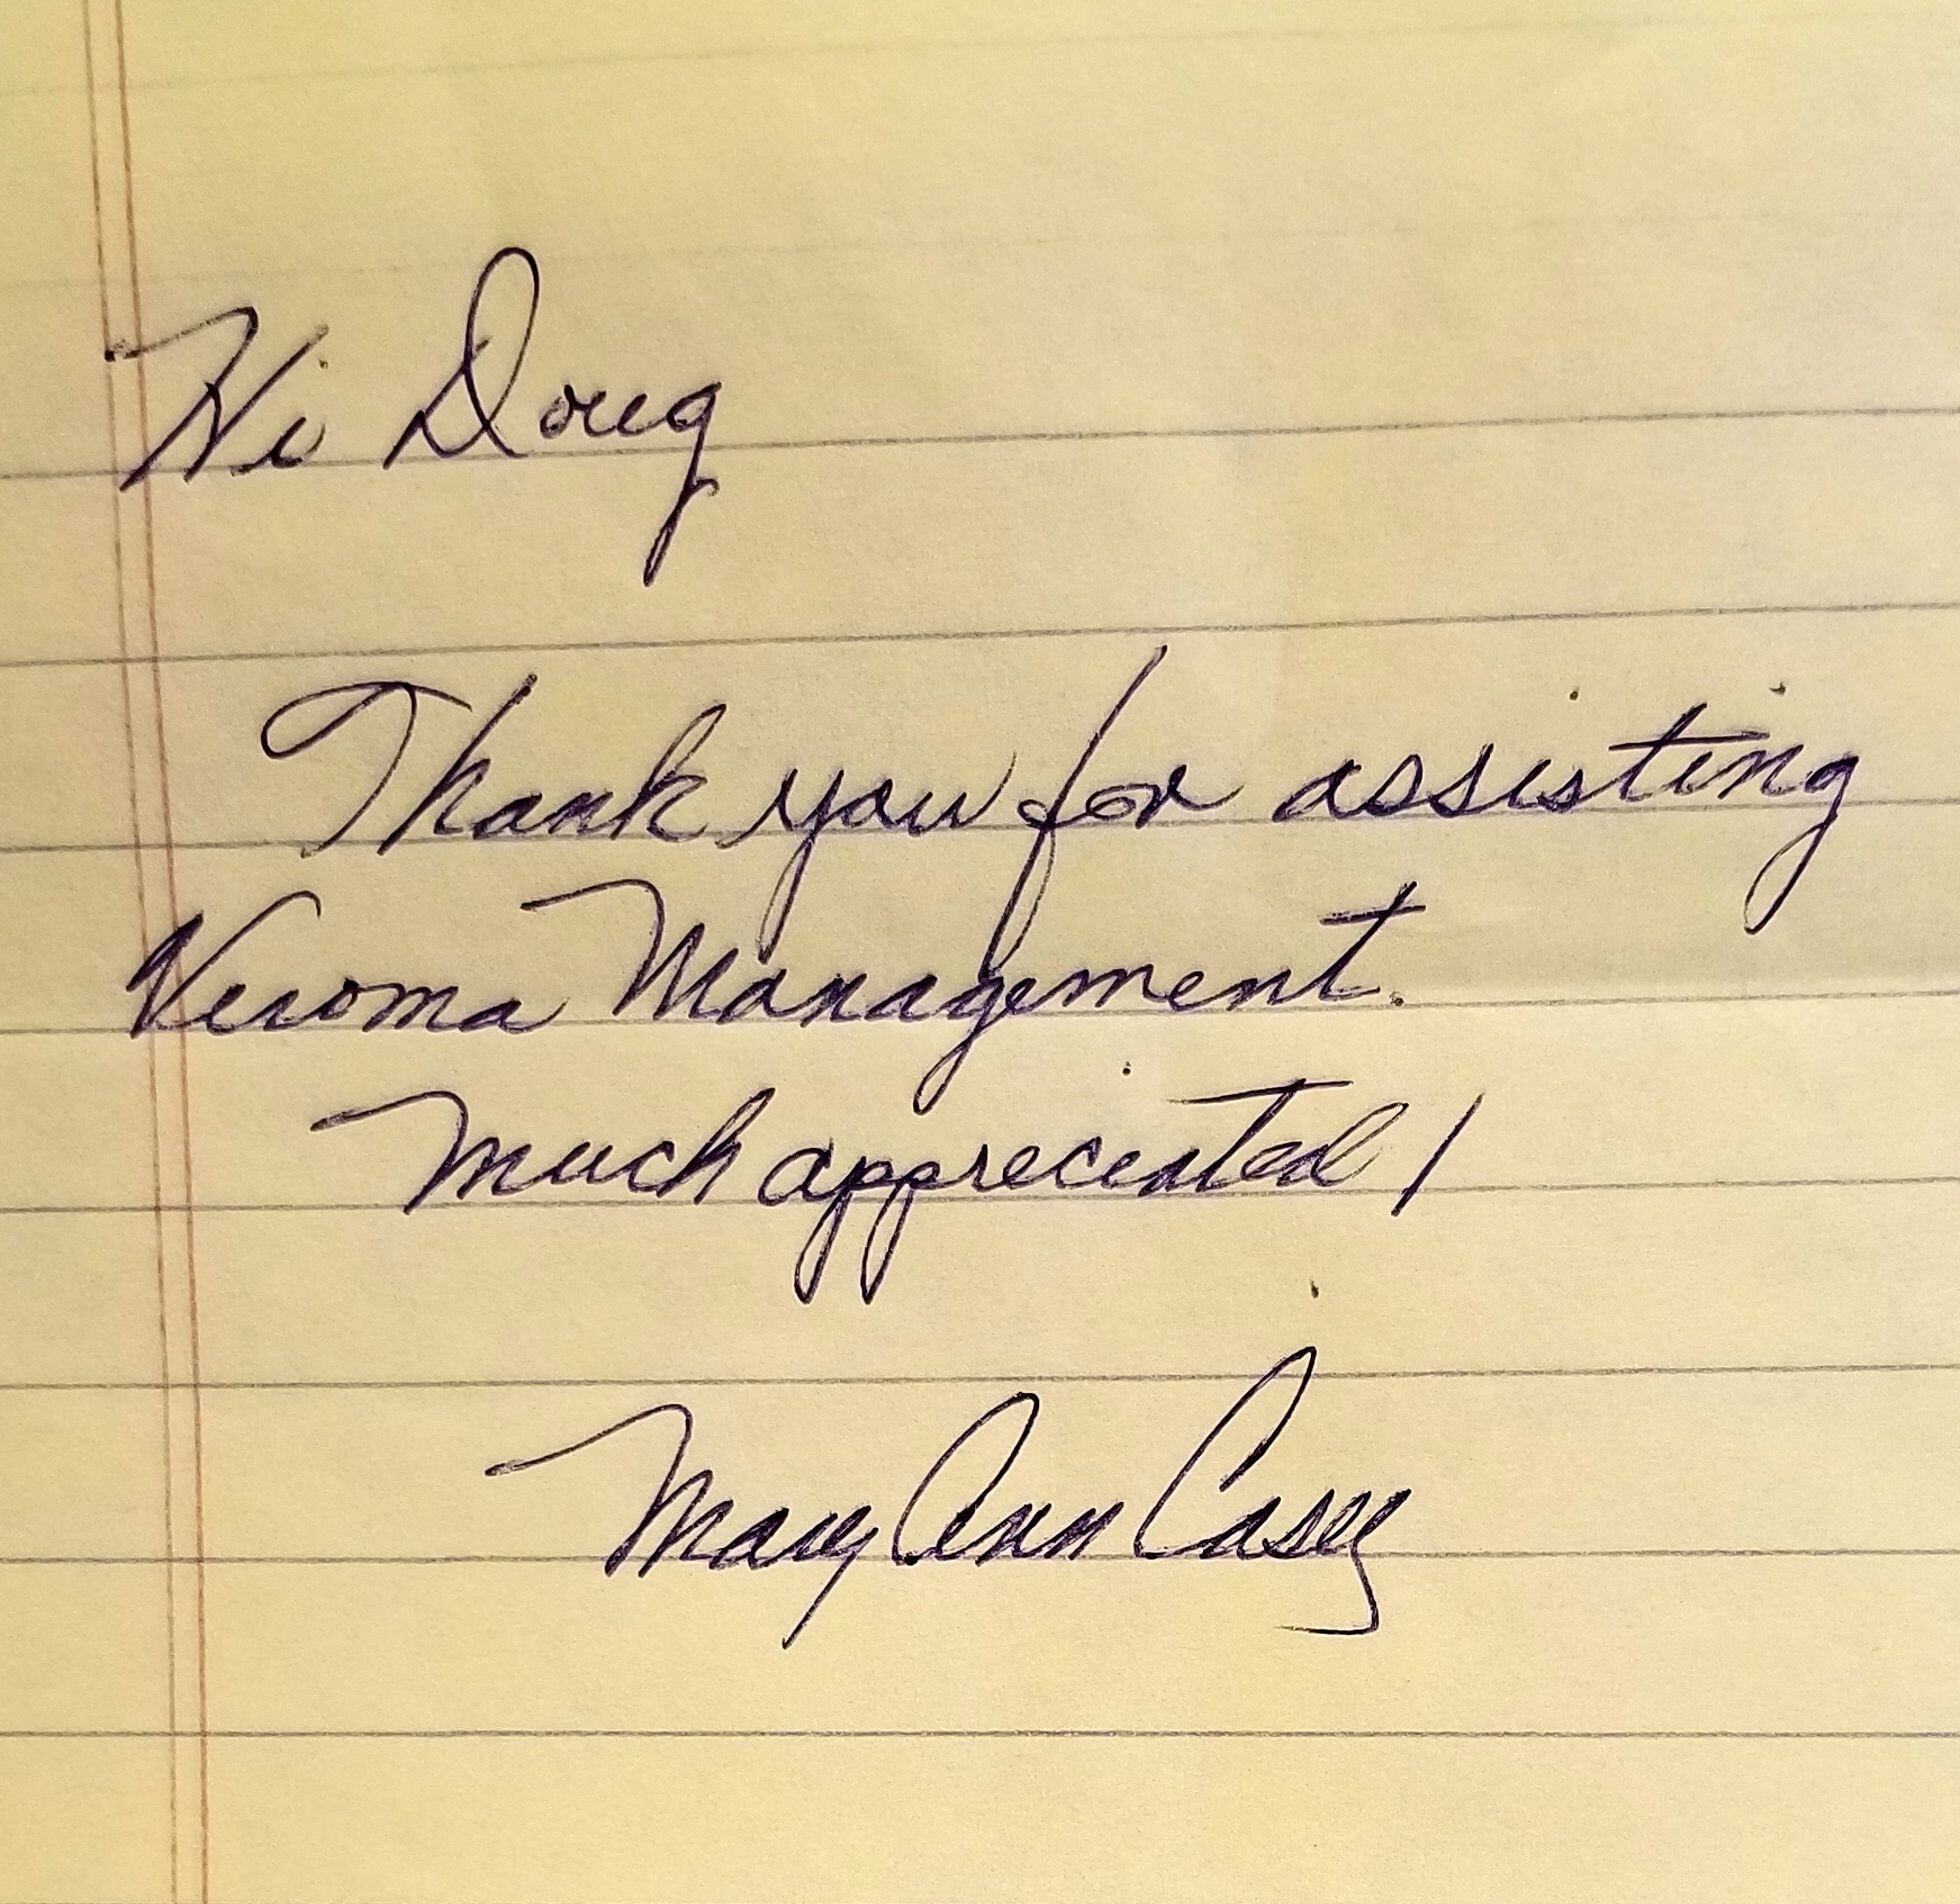 Hi Doug
Thank you for assisting
Veroma Management.
Much appreciated!
Mary Ann Casey